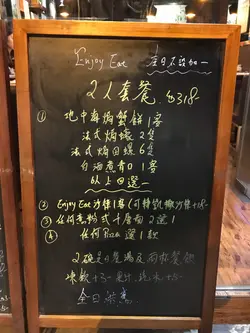 Enjoy Eat 全日不設加一
2人套餐 $318-
① 地中海焗蟹餅1客
法式焗蠔2隻
法式焗田螺6隻
白酒煮青口1客
以上四選一
② Enjoy Eat 沙律1客(可轉凱撒沙律+18-
③ 任何意粉或十居旬2選1
④ 任何Pizza選1款
2碗是日餐湯及兩杯餐飲
凍飲+3- 果汁、汽水+5-
全日供應